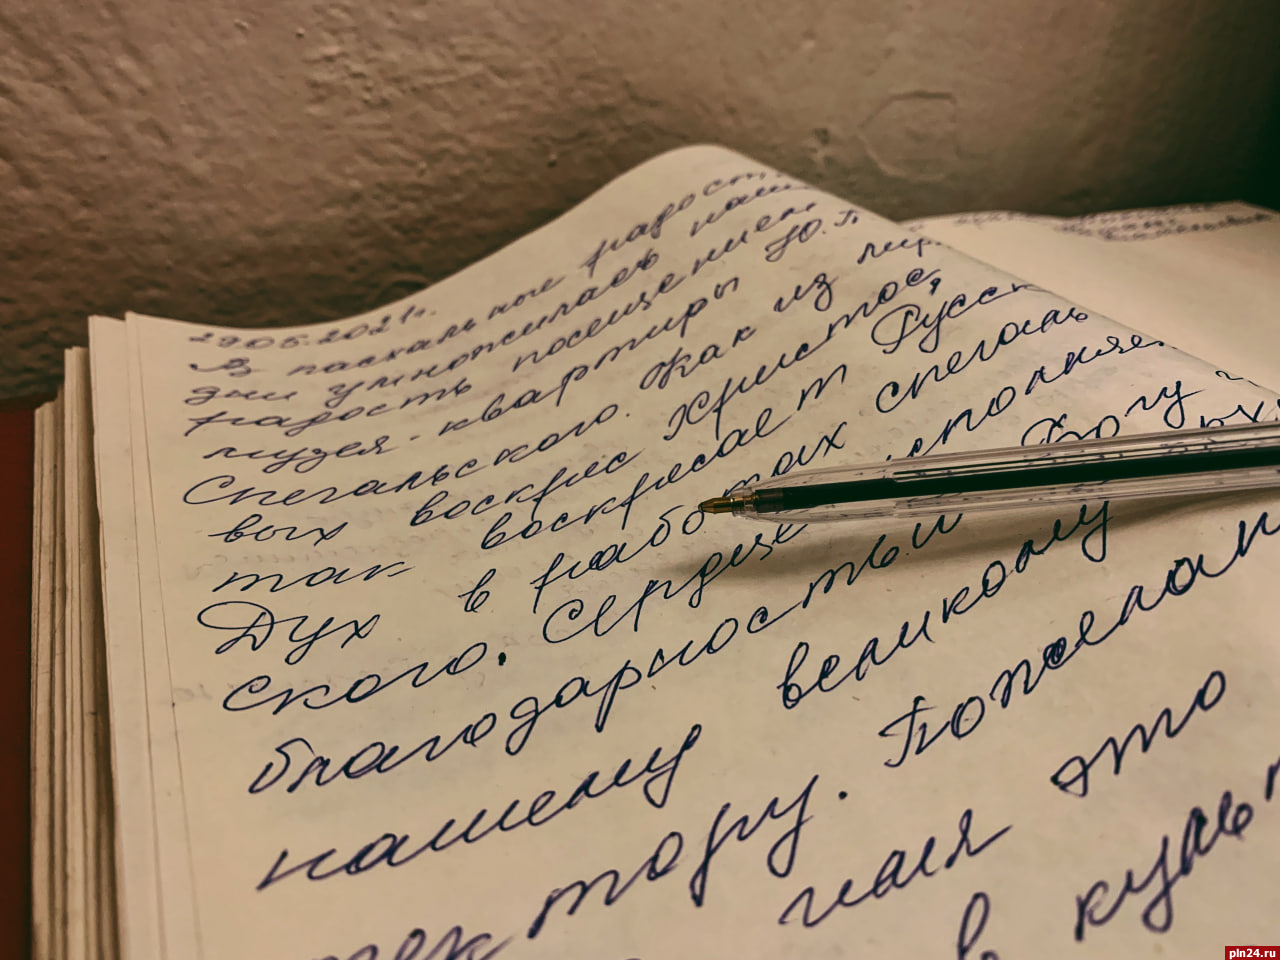 29.05.2021г.
В пасхальные радост
дни умножилась наш
радость посещением
музея-квартиры Ю.П
Спегальского. Как из мир
вых воскрес Христос,
так воскресает Русск
Дух в работах Спегаль
ского. Сердце исполняе
благодарностью Богу
нашему великому
тектору. Пожелан
ния это
в культ
pln24.ru